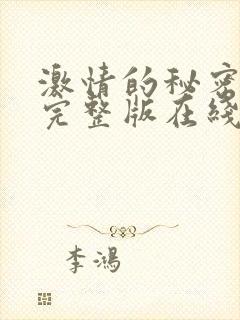 激情的秘密
完整版在线
李鸿